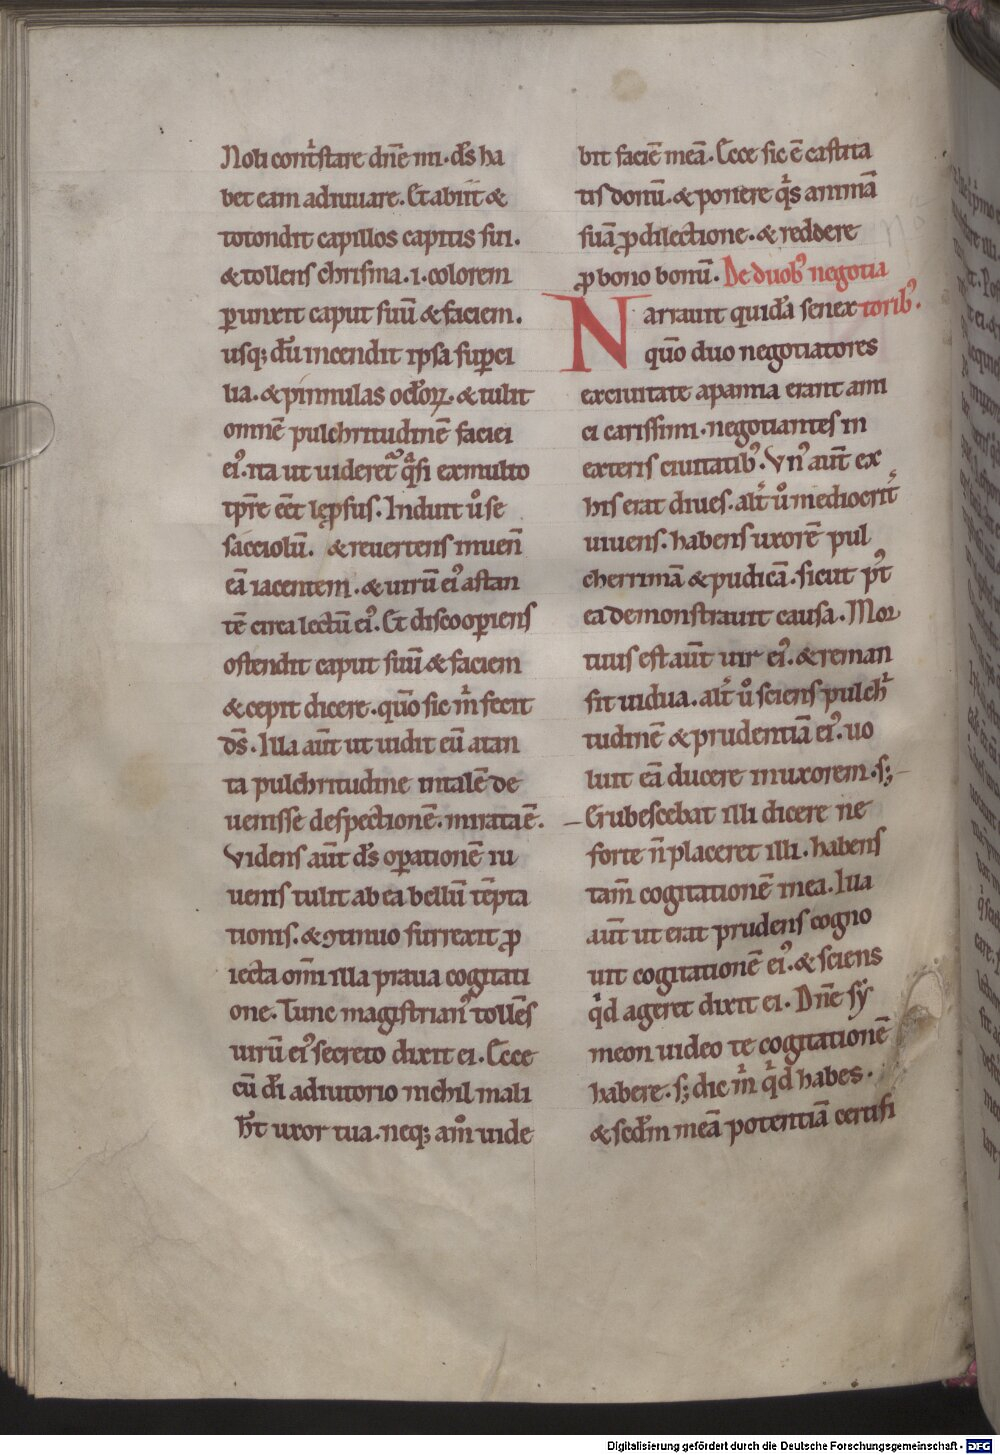 Noli cont͛stare dnē mi · d̄s ha
bet eam adiuuare. Et abiit &
totondit capillos capitis sui.
& tollens chrisma · i · colorem
ꝑunxit caput suū & faciem.
usq; dū incendit ipsa suꝑci
lia · & pinnulas oculoꝝ · & tulit
omnē pulchritudinē faciei
ei᾽ · ita ut uideret᾽ q̄si ex multo
tp̄re eēt lępsus. Induit u̾ se
sacciolū. & reuertens inuen̄
eā iacentem · & uirū ei᾽ astan
tē circa lectū ei᾽. Et discooꝑiens
ostendit caput suū & faciem
& cepit dicere · quō sic m̓ fecit
d̄s · Illa aūt ut uidit eū a tan
ta pulchritudine in talē de
uenisse despectionē · mirata ē.
Videns aūt d̄s oꝑationē iu
uenis tulit ab ea bellū tēpta
tionis · & ꝯtinuo surrexit ꝓ
iecta om̄i illa praua cogitati
one. Tunc magistrian᾽ tollēs
uirū ei᾽ secreto dixit ei. Ecce
cū d̄i adiutorio nichil mali
h̄t uxor tua · neq; am̊ uide
bit faciē meā. Ecce sic ē castita
tis donū · & ponere q̓s animā
suā ꝓ dilectione · & reddere
ꝓ bono bonū. De duob᾽ negotia
Narrauit quidā senex torib᾽.
quō duo negotiatores
ex ciuitate apamia erant ami
ci carissimi · negotiantes in
exteris ciuitatib᾽. Vn᾽ aūt ex
his erat diues · alt̓ u̾ mediocrit̓
uiuens · habens uxorē pul
cherrimā & pudicā · sicut p᾽t
ea demonstrauit causa. Mor
tuus est aūt uir ei᾽ · & reman
sit uidua · alt̓ u̾ sciens pulch̓
tudinē & prudentiā ei᾽ · uo
luit eā ducere in uxorem · s;
Erubescebat illi dicere ne
forte n̄ placeret illi · habens
tam̄ cogitationē in ea. Illa
aūt ut erat prudens cogno
uit cogitationē ei᾽ · & sciens
q̓d ageret dixit ei. Dnē sy
meon uideo te cogitationē
habere · s; dic m̓ q̓d habes ·
& scdm̄ meā potentiā certifi
Digitalisierung gefördert durch die Deutsche Forschungsgemeinschaft - DFG